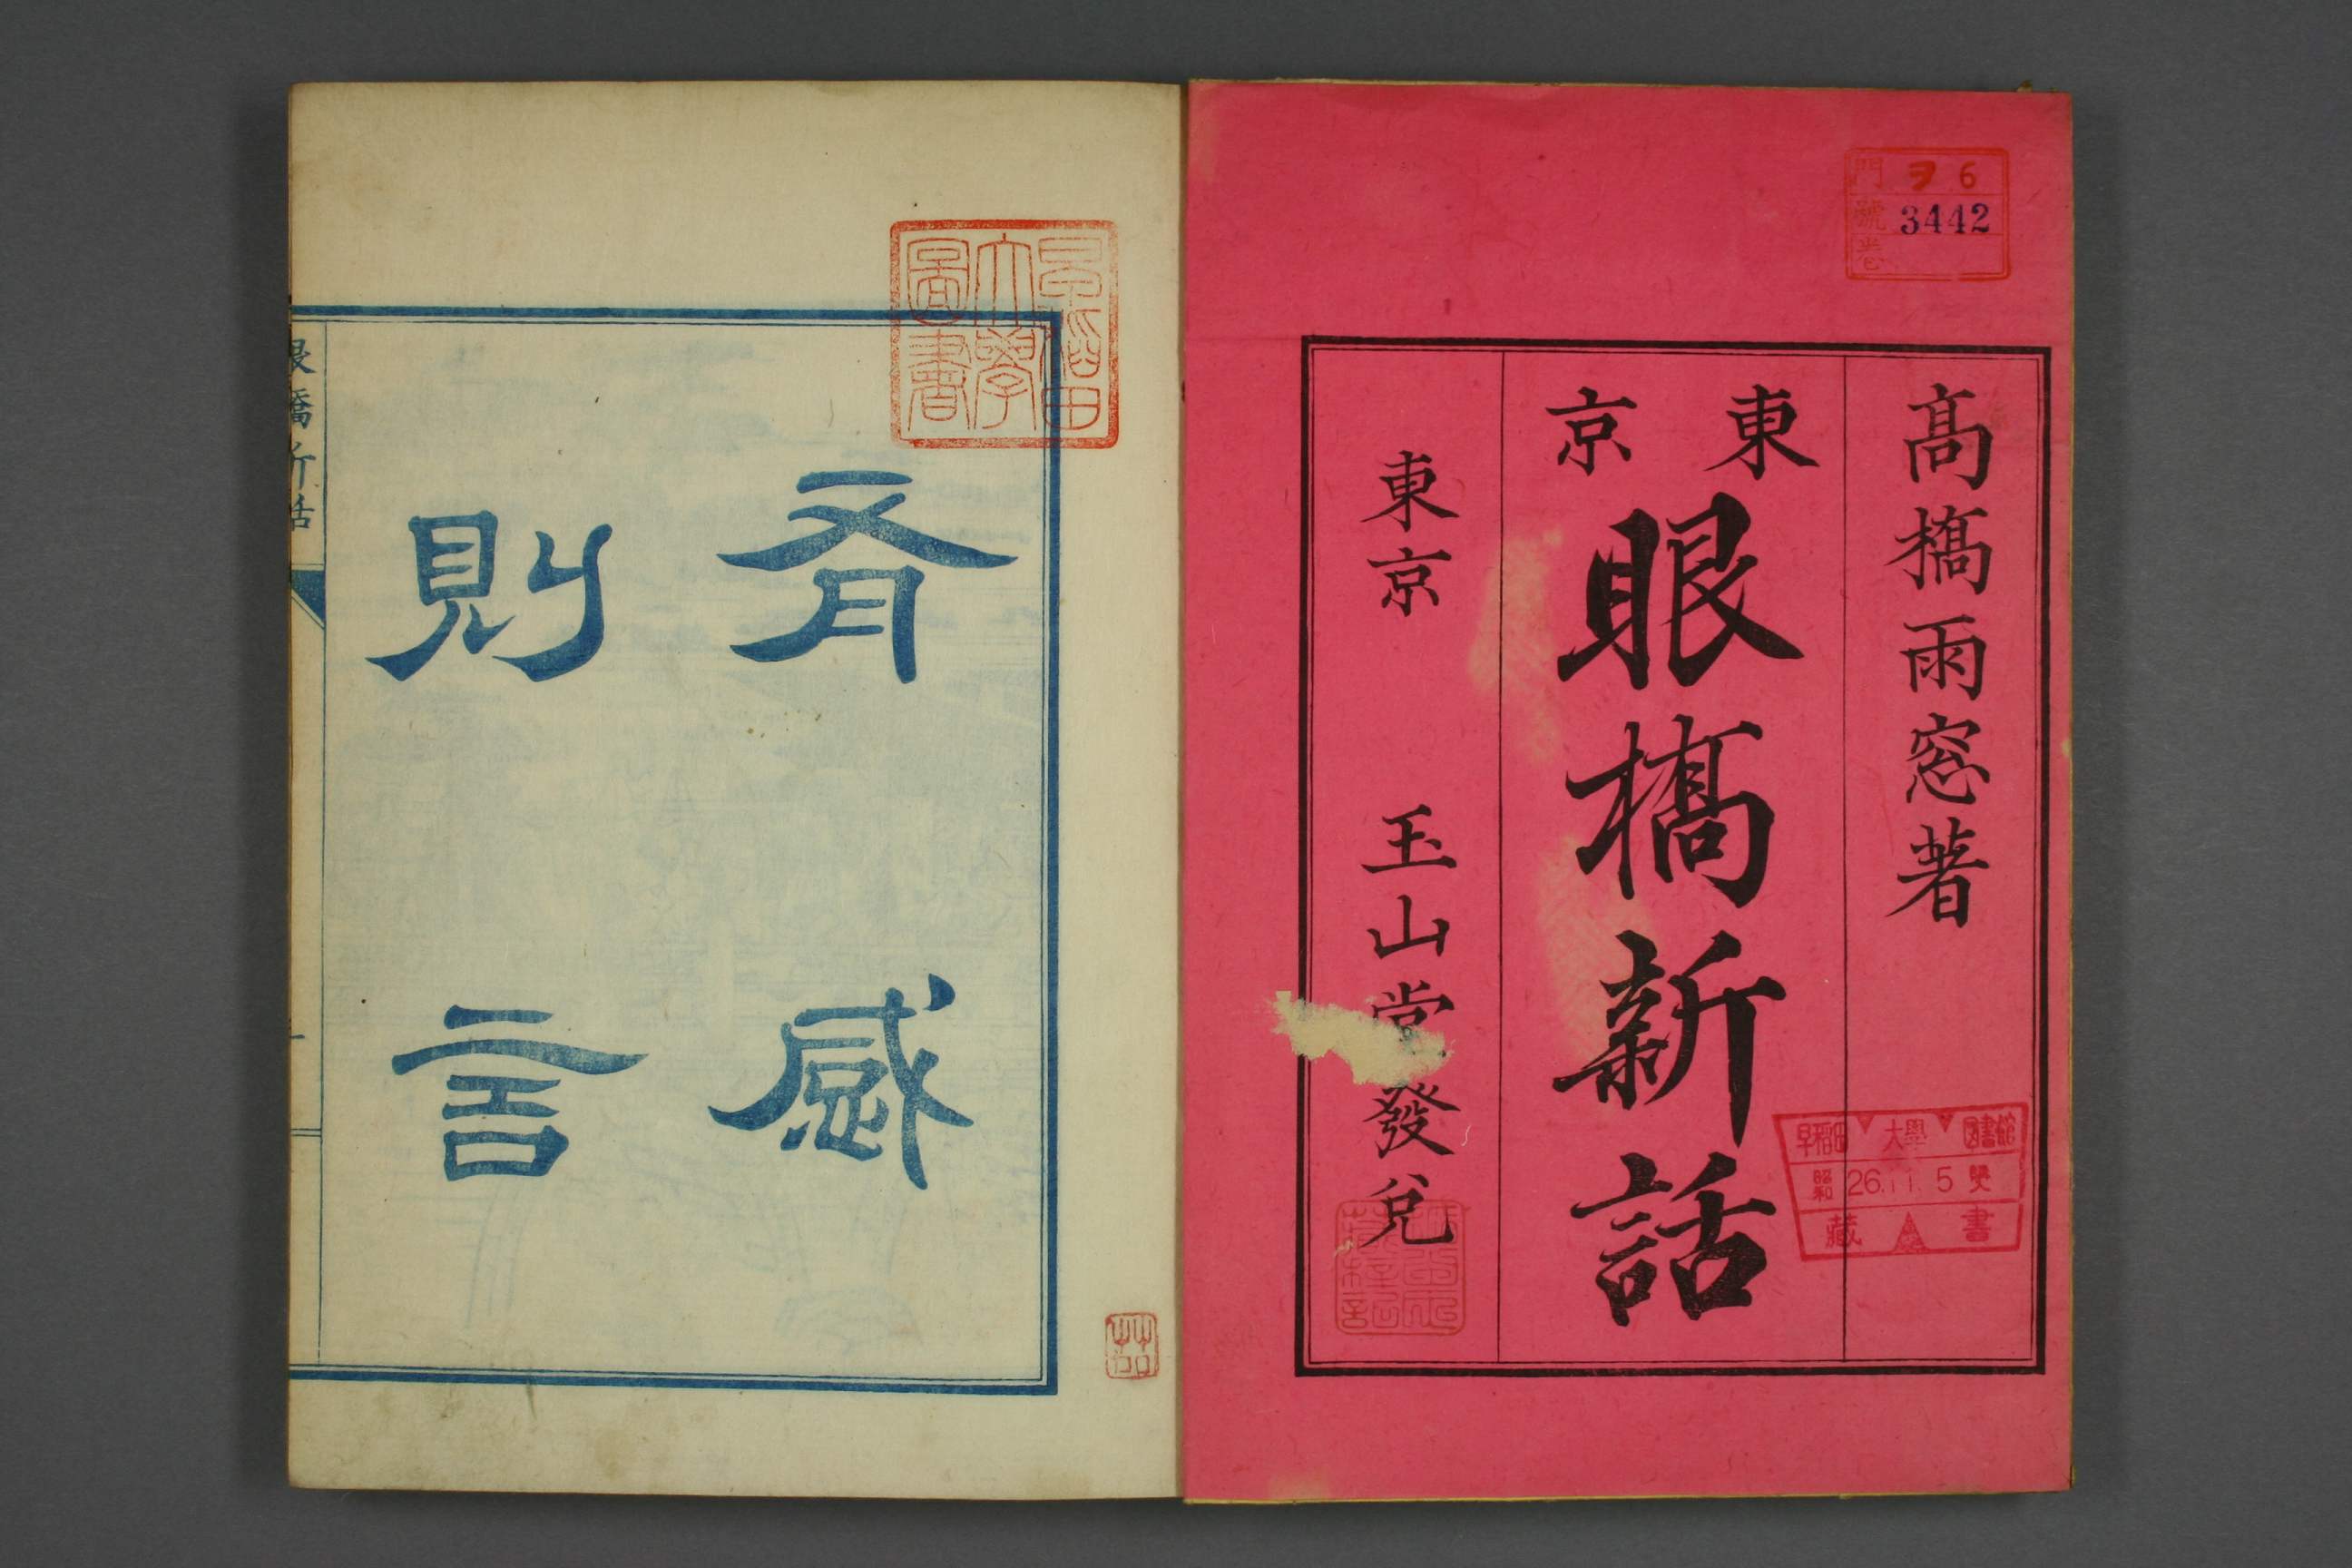 門 ヲ 6
號 3442
卷
髙橋雨窓著
東京
眼橋新話
東京 玉山堂發兌
早稻田大學圖書館
昭和 26.11.5
藏書
早稻田
大學
圖書
有感
則言
眼橋新話